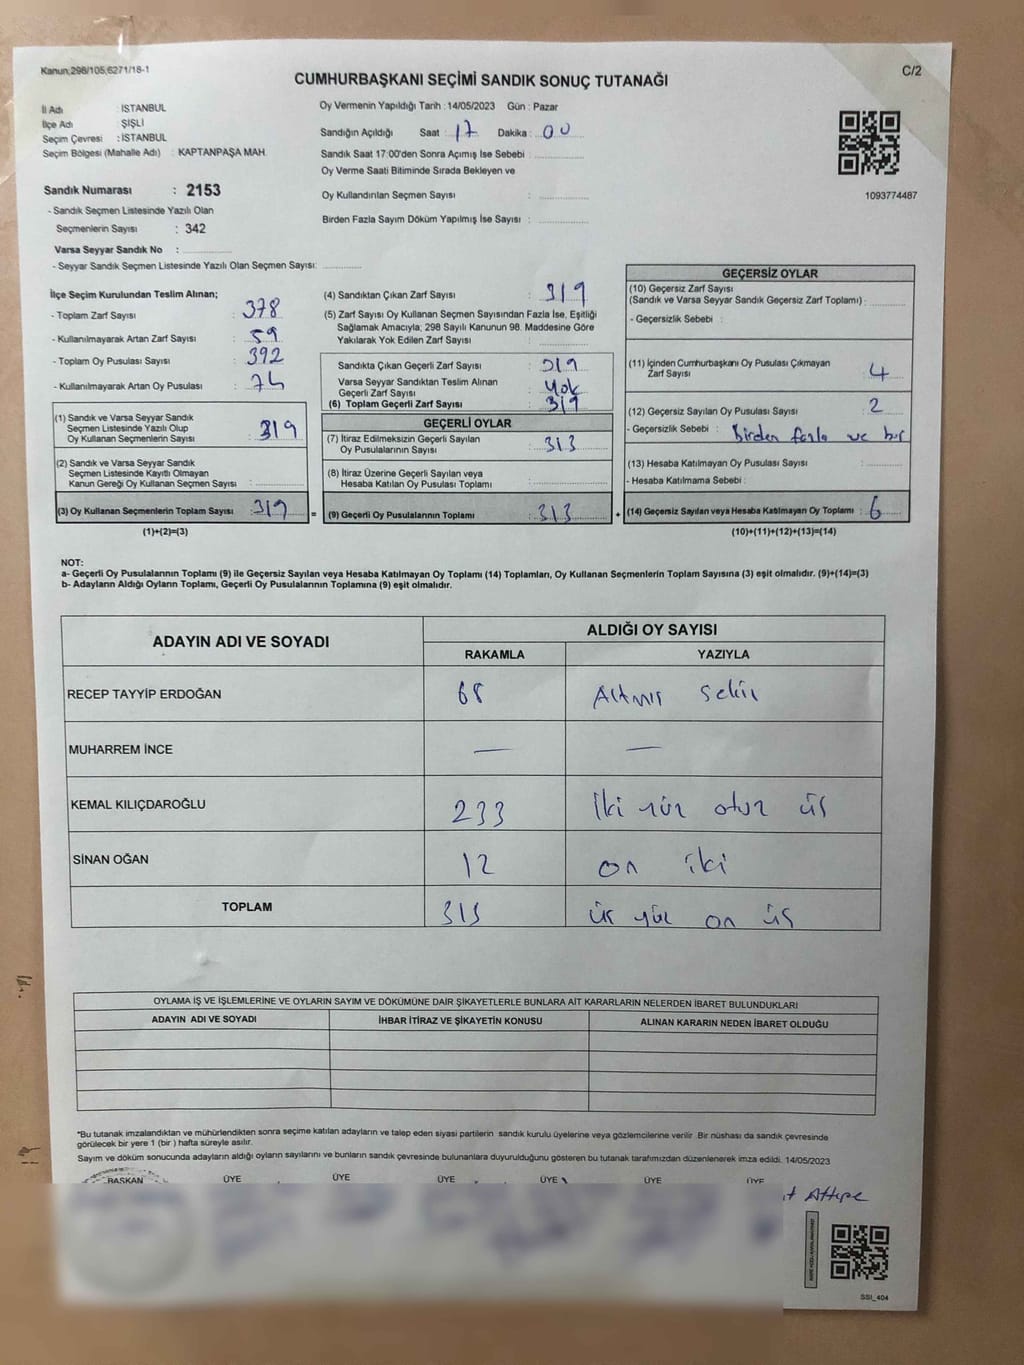 Kanun:298/105,6271/18-1
C/2
CUMHURBAŞKANI SEÇİMİ SANDIK SONUÇ TUTANAĞI
İl Adı : İSTANBUL
İlçe Adı : ŞİŞLİ
Seçim Çevresi : İSTANBUL
Seçim Bölgesi (Mahalle Adı) : KAPTANPAŞA MAH.
Sandık Numarası : 2153
- Sandık Seçmen Listesinde Yazılı Olan
Seçmenlerin Sayısı : 342
Varsa Seyyar Sandık No :
- Seyyar Sandık Seçmen Listesinde Yazılı Olan Seçmen Sayısı:
Oy Vermenin Yapıldığı Tarih : 14/05/2023 Gün : Pazar
Sandığın Açıldığı Saat : 17 Dakika : 00
Sandık Saat 17:00'den Sonra Açımış İse Sebebi :
Oy Verme Saati Bitiminde Sırada Bekleyen ve
Oy Kullandırılan Seçmen Sayısı :
Birden Fazla Sayım Döküm Yapılmış İse Sayısı :
1093774487
İlçe Seçim Kurulundan Teslim Alınan;
- Toplam Zarf Sayısı : 378
- Kullanılmayarak Artan Zarf Sayısı : 59
- Toplam Oy Pusulası Sayısı : 392
- Kullanılmayarak Artan Oy Pusulası : 74
(1) Sandık ve Varsa Seyyar Sandık
Seçmen Listesinde Yazılı Olup
Oy Kullanan Seçmenlerin Sayısı : 319
(2) Sandık ve Varsa Seyyar Sandık
Seçmen Listesinde Kayıtlı Olmayan
Kanun Gereği Oy Kullanan Seçmen Sayısı :
(3) Oy Kullanan Seçmenlerin Toplam Sayısı : 319
(1)+(2)=(3)
(4) Sandıktan Çıkan Zarf Sayısı : 319
(5) Zarf Sayısı Oy Kullanan Seçmen Sayısından Fazla İse, Eşitliği
Sağlamak Amacıyla; 298 Sayılı Kanunun 98. Maddesine Göre
Yakılarak Yok Edilen Zarf Sayısı :
Sandıkta Çıkan Geçerli Zarf Sayısı : 319
Varsa Seyyar Sandıktan Teslim Alınan
Geçerli Zarf Sayısı : Yok
(6) Toplam Geçerli Zarf Sayısı : 319
GEÇERLİ OYLAR
(7) İtiraz Edilmeksizin Geçerli Sayılan
Oy Pusulalarının Sayısı : 313
(8) İtiraz Üzerine Geçerli Sayılan veya
Hesaba Katılan Oy Pusulası Toplamı :
= (9) Geçerli Oy Pusulalarının Toplamı : 313 +
GEÇERSİZ OYLAR
(10) Geçersiz Zarf Sayısı
(Sandık ve Varsa Seyyar Sandık Geçersiz Zarf Toplamı) :
- Geçersizlik Sebebi :
(11) İçinden Cumhurbaşkanı Oy Pusulası Çıkmayan
Zarf Sayısı : 4
(12) Geçersiz Sayılan Oy Pusulası Sayısı : 2
- Geçersizlik Sebebi : birden fazla ve
(13) Hesaba Katılmayan Oy Pusulası Sayısı :
- Hesaba Katılmama Sebebi :
(14) Geçersiz Sayılan veya Hesaba Katılmayan Oy Toplamı : 6
(10)+(11)+(12)+(13)=(14)
NOT:
a- Geçerli Oy Pusulalarının Toplamı (9) ile Geçersiz Sayılan veya Hesaba Katılmayan Oy Toplamı (14) Toplamları, Oy Kullanan Seçmenlerin Toplam Sayısına (3) eşit olmalıdır. (9)+(14)=(3)
b- Adayların Aldığı Oyların Toplamı, Geçerli Oy Pusulalarının Toplamına (9) eşit olmalıdır.
ADAYIN ADI VE SOYADI ALDIĞI OY SAYISI
RAKAMLA YAZIYLA
RECEP TAYYİP ERDOĞAN 68 Altmış Sekiz
MUHARREM İNCE — —
KEMAL KILIÇDAROĞLU 233 İki yüz otuz üç
SİNAN OĞAN 12 on iki
TOPLAM 313 üç yüz on üç
OYLAMA İŞ VE İŞLEMLERİNE VE OYLARIN SAYIM VE DÖKÜMÜNE DAİR ŞİKAYETLERLE BUNLARA AİT KARARLARIN NELERDEN İBARET BULUNDUKLARI
ADAYIN ADI VE SOYADI İHBAR İTİRAZ VE ŞİKAYETİN KONUSU ALINAN KARARIN NEDEN İBARET OLDUĞU
*Bu tutanak imzalandıktan ve mühürlendikten sonra seçime katılan adayların ve talep eden siyasi partilerin sandık kurulu üyelerine veya gözlemcilerine verilir. Bir nüshası da sandık çevresinde
görülecek bir yere 1 (bir ) hafta süreyle asılır.
Sayım ve döküm sonucunda adayların aldığı oyların sayılarını ve bunların sandık çevresinde bulunanlara duyurulduğunu gösteren bu tutanak tarafımızdan düzenlenerek imza edildi. 14/05/2023
BAŞKAN ÜYE ÜYE ÜYE ÜYE ÜYE ÜYE
SSI_404